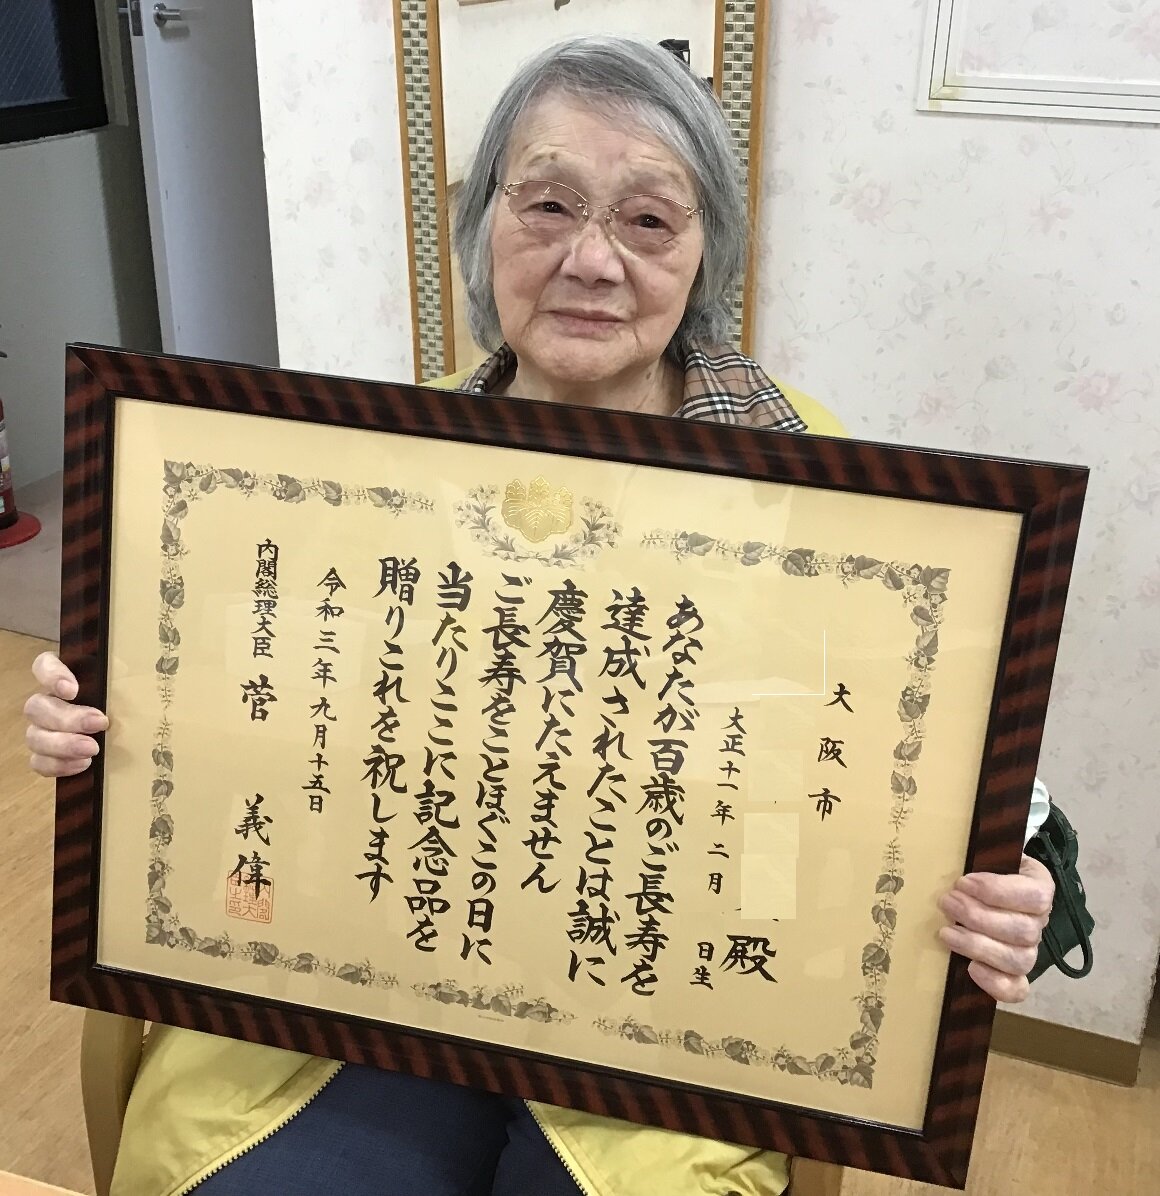 大阪市
殿
大正十一年二月 日生
あなたが百歳のご長寿を
達成されたことは誠に
慶賀にたえません
ご長寿をことほぐこの日に
当たりここに記念品を
贈りこれを祝します
令和三年九月十五日
内閣総理大臣 菅 義偉